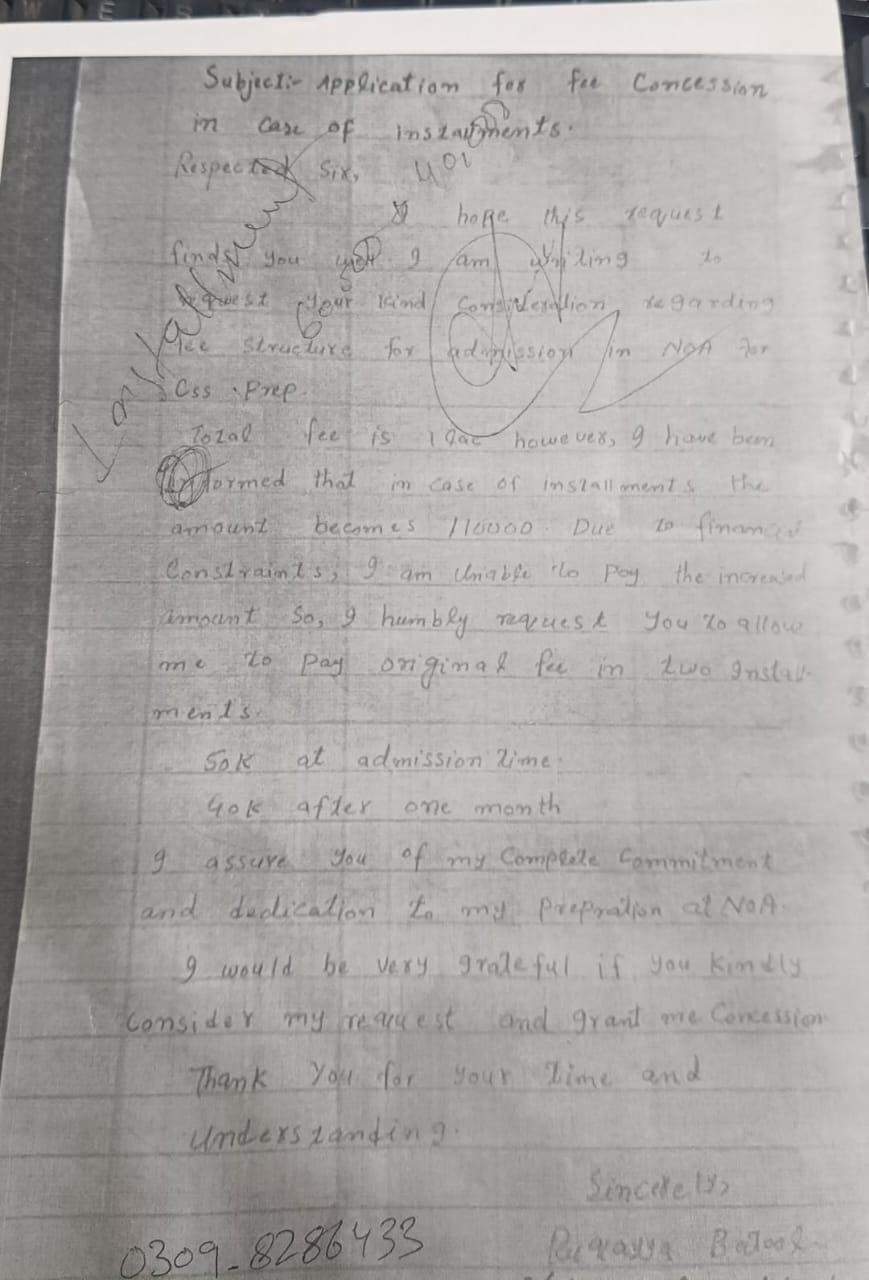 Subject:- Application for fee Concession
in case of installments.
Respected Sir,
I hope this request
finds you well. I am writing to
request your kind consideration regarding
fee structure for admission in NOA for
Css Prep.
Total fee is 1 lac however, I have been
informed that in case of installments the
amount becomes 110000. Due to financial
Constraints, I am unable to pay the increased
amount so, I humbly request you to allow
me to pay original fee in two install-
ments.
50k at admission time.
40k after one month
I assure you of my Complete Commitment
and dedication to my prepration at NOA.
I would be very grateful if you kindly
consider my request and grant me Concession
Thank you for your time and
understanding.
Sincerely,
Ruqayya Batool
0309-8286433
Installment